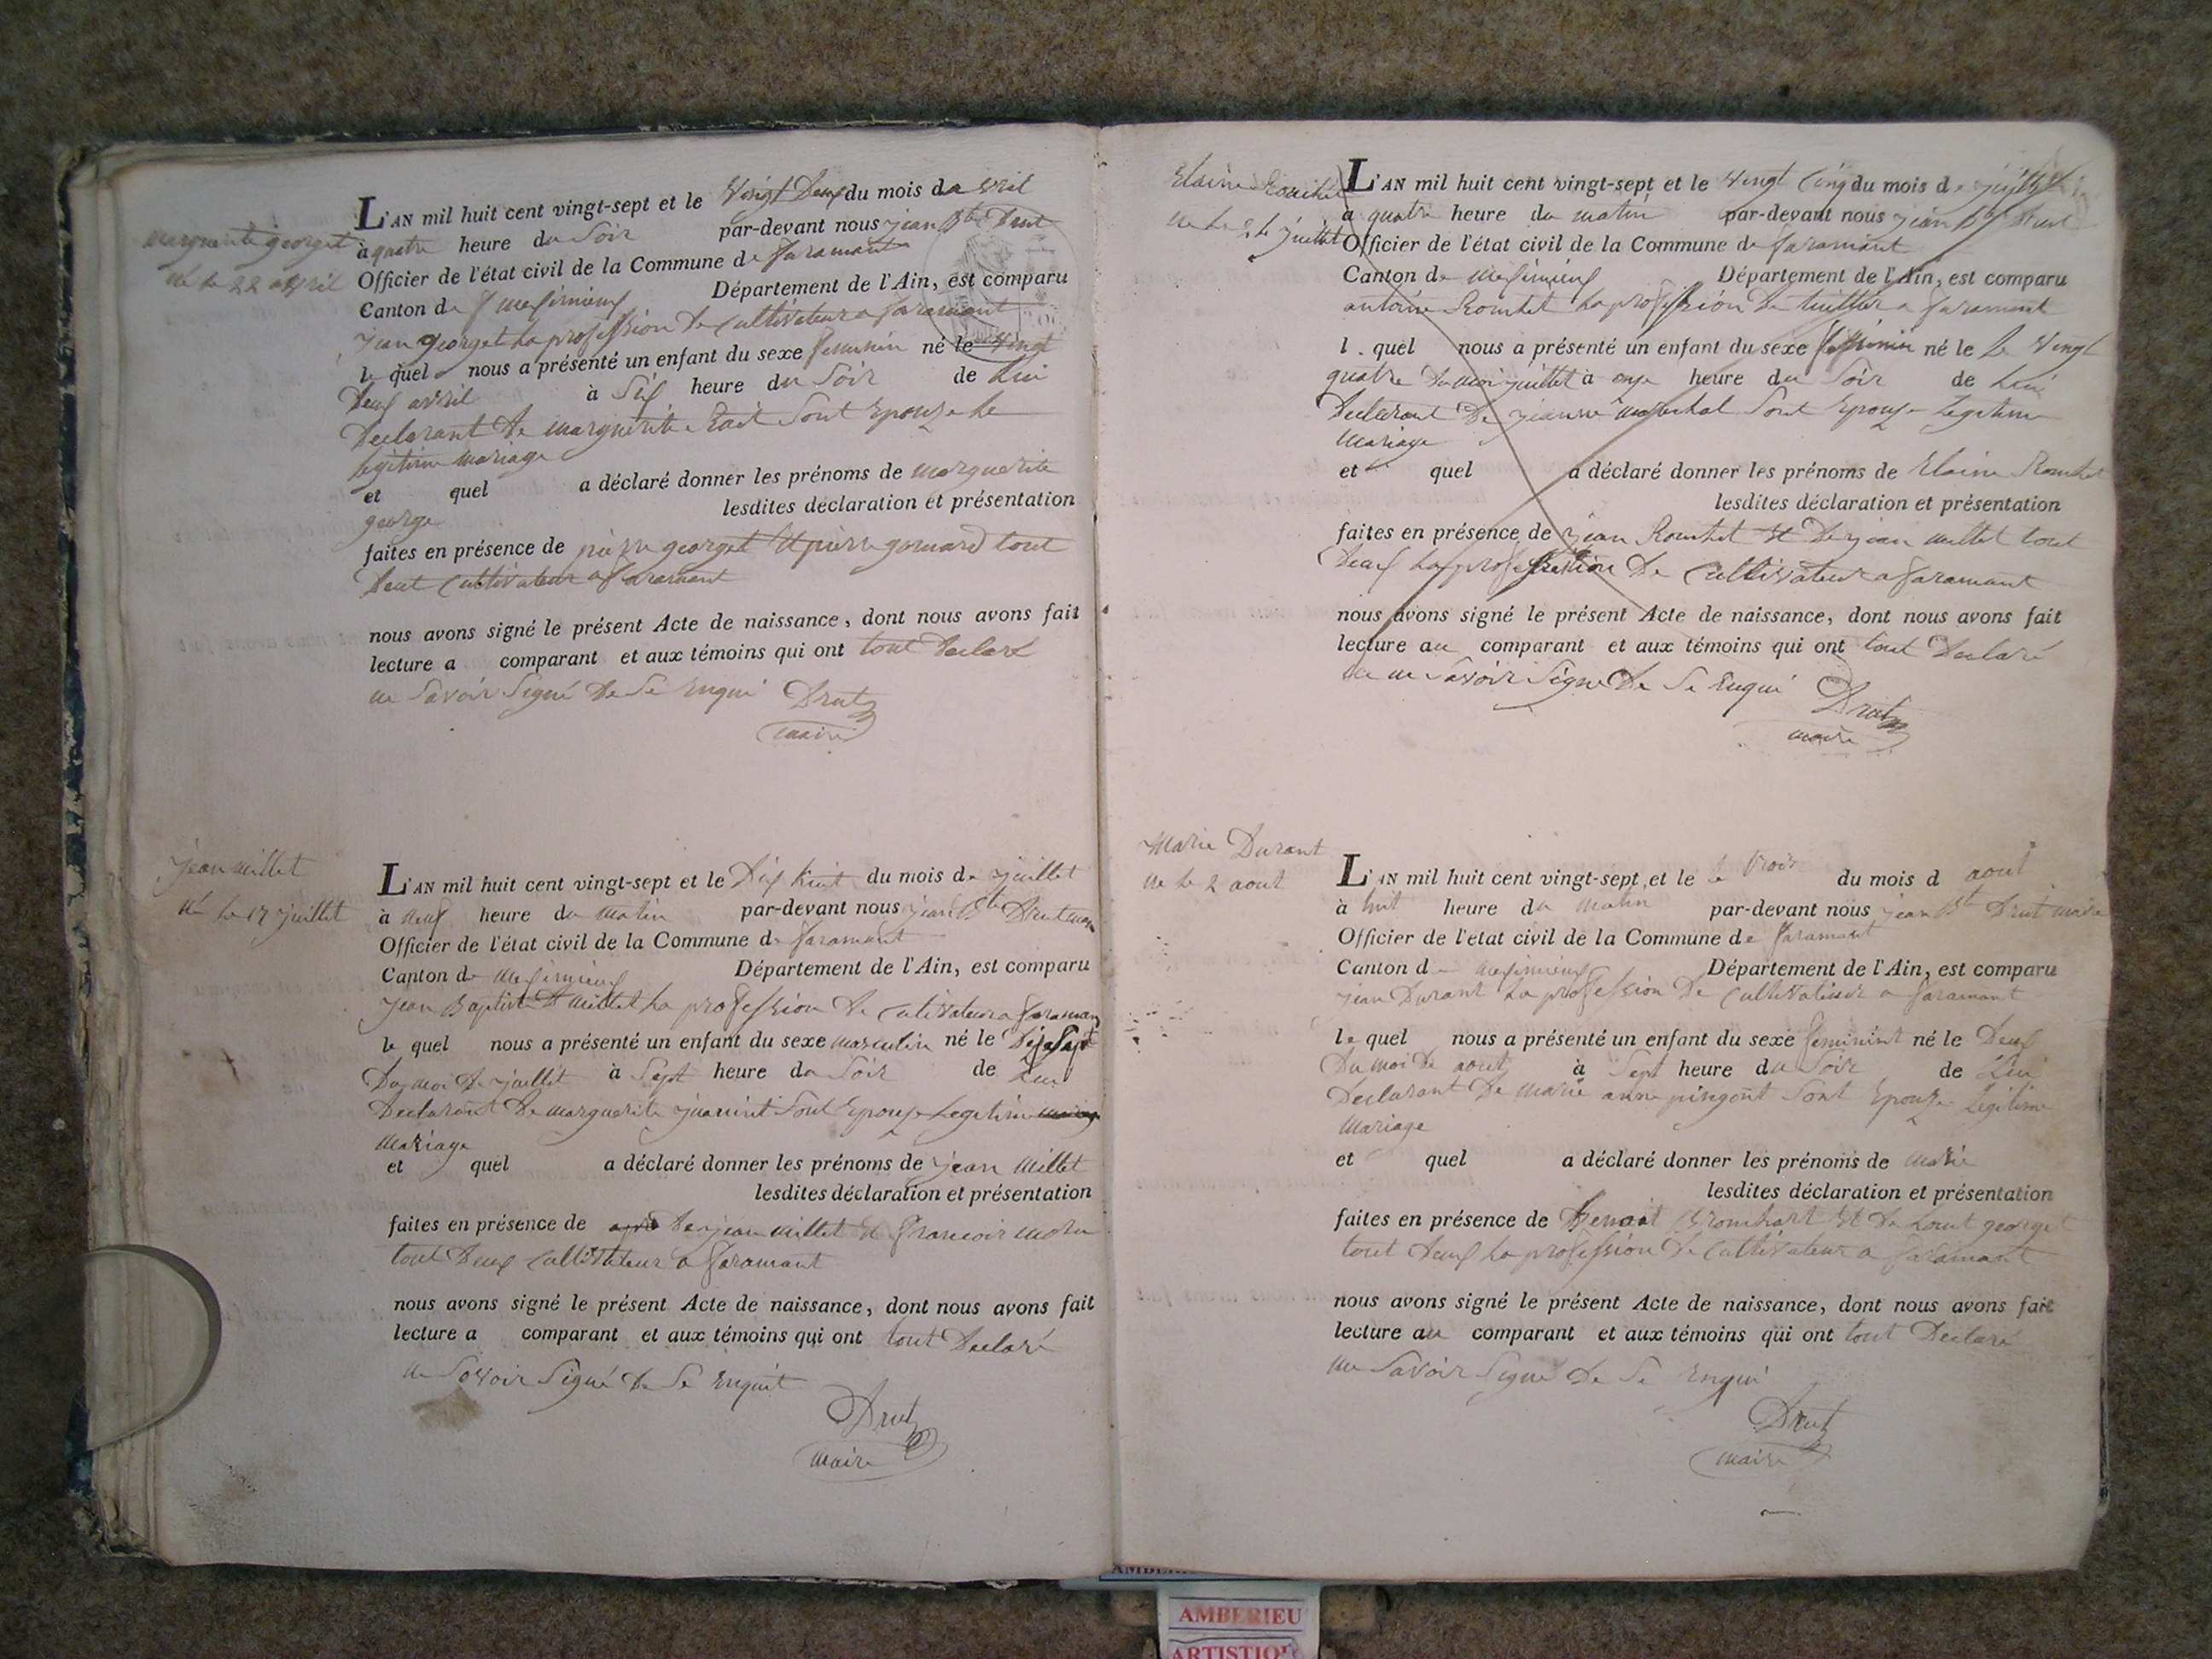 marguerite georget
né le 22 avril
L'AN mil huit cent vingt-sept et le Vingt Deux du mois da vril
à quatre heure du Soir par-devant nous jean Bte Drut
Officier de l'état civil de la Commune de faramant
Canton de meximieux Département de l'Ain, est comparu
jean georget la profession De Cultivateur a faramant
le quel nous a présenté un enfant du sexe feminin né le Vingt
Deux avril à Six heure du Soir de Lui
Declarant De marguerite Sont Epouze Le
legitime mariage
et quel a déclaré donner les prénoms de marguerite
george lesdites déclaration et présentation
faites en présence de georget Et pierre tout
Deux Cultivateur a faramant
nous avons signé le présent Acte de naissance, dont nous avons fait
lecture a comparant et aux témoins qui ont tout Declaré
ne Savoir Signé De Se Enqui Drut
maire
jean millet
né le 17 juillet
L'AN mil huit cent vingt-sept et le Dix huit du mois de juillet
à neuf heure du matin par-devant nous jean Bte Drut
Officier de l'état civil de la Commune de faramant
Canton de meximieux Département de l'Ain, est comparu
jean Baptiste millet La profession De a faramant
le quel nous a présenté un enfant du sexe masculin né le
Du moi De juillet à Sept heure du Soir de Lui
Declarant De marguerite Sont Epouze Legitime
mariage
et quel a déclaré donner les prénoms de jean millet
lesdites déclaration et présentation
faites en présence de De jean millet Et
tout Deux Cultivateur a faramant
nous avons signé le présent Acte de naissance, dont nous avons fait
lecture a comparant et aux témoins qui ont tout Declaré
ne Savoir Signé De Se Enquit
Drut
maire
Elaine
né le juillet
L'AN mil huit cent vingt-sept et le Vingt Cinq du mois de juillet
à quatre heure du matin par-devant nous jean Bte Drut
Officier de l'état civil de la Commune de faramant
Canton de meximieux Département de l'Ain, est comparu
antoine La profession De a faramant
l quel nous a présenté un enfant du sexe né le Le Vingt
quatre Du moi juillet à onze heure du Soir de Lui
Declarant De jeanne Sont Epouze Legitime
mariage
et quel a déclaré donner les prénoms de Elaine
lesdites déclaration et présentation
faites en présence de jean Et De jean millet tout
Deux La profession De Cultivateur a faramant
nous avons signé le présent Acte de naissance, dont nous avons fait
lecture au comparant et aux témoins qui ont tout Declaré
ne Savoir Signe De Se Enqui
Drut
maire
Marie Durant
né le 2 aout
L'AN mil huit cent vingt-sept et le le trois du mois d aout
à huit heure du matin par-devant nous jean Bte Drut maire
Officier de l'état civil de la Commune de faramant
Canton de meximieux Département de l'Ain, est comparu
jean Durant La profession De Cultivateur a faramant
le quel nous a présenté un enfant du sexe né le Deux
Du moi De aout à Sept heure du Soir de Lui
Declarant De marie anne Sont Epouze Legitime
mariage
et quel a déclaré donner les prénoms de marie
lesdites déclaration et présentation
faites en présence de Et De georget
tout Deux La profession De Cultivateur a faramant
nous avons signé le présent Acte de naissance, dont nous avons fait
lecture au comparant et aux témoins qui ont tout Declaré
ne Savoir Signé De Se Enqui
Drut
maire
AMBERIEU